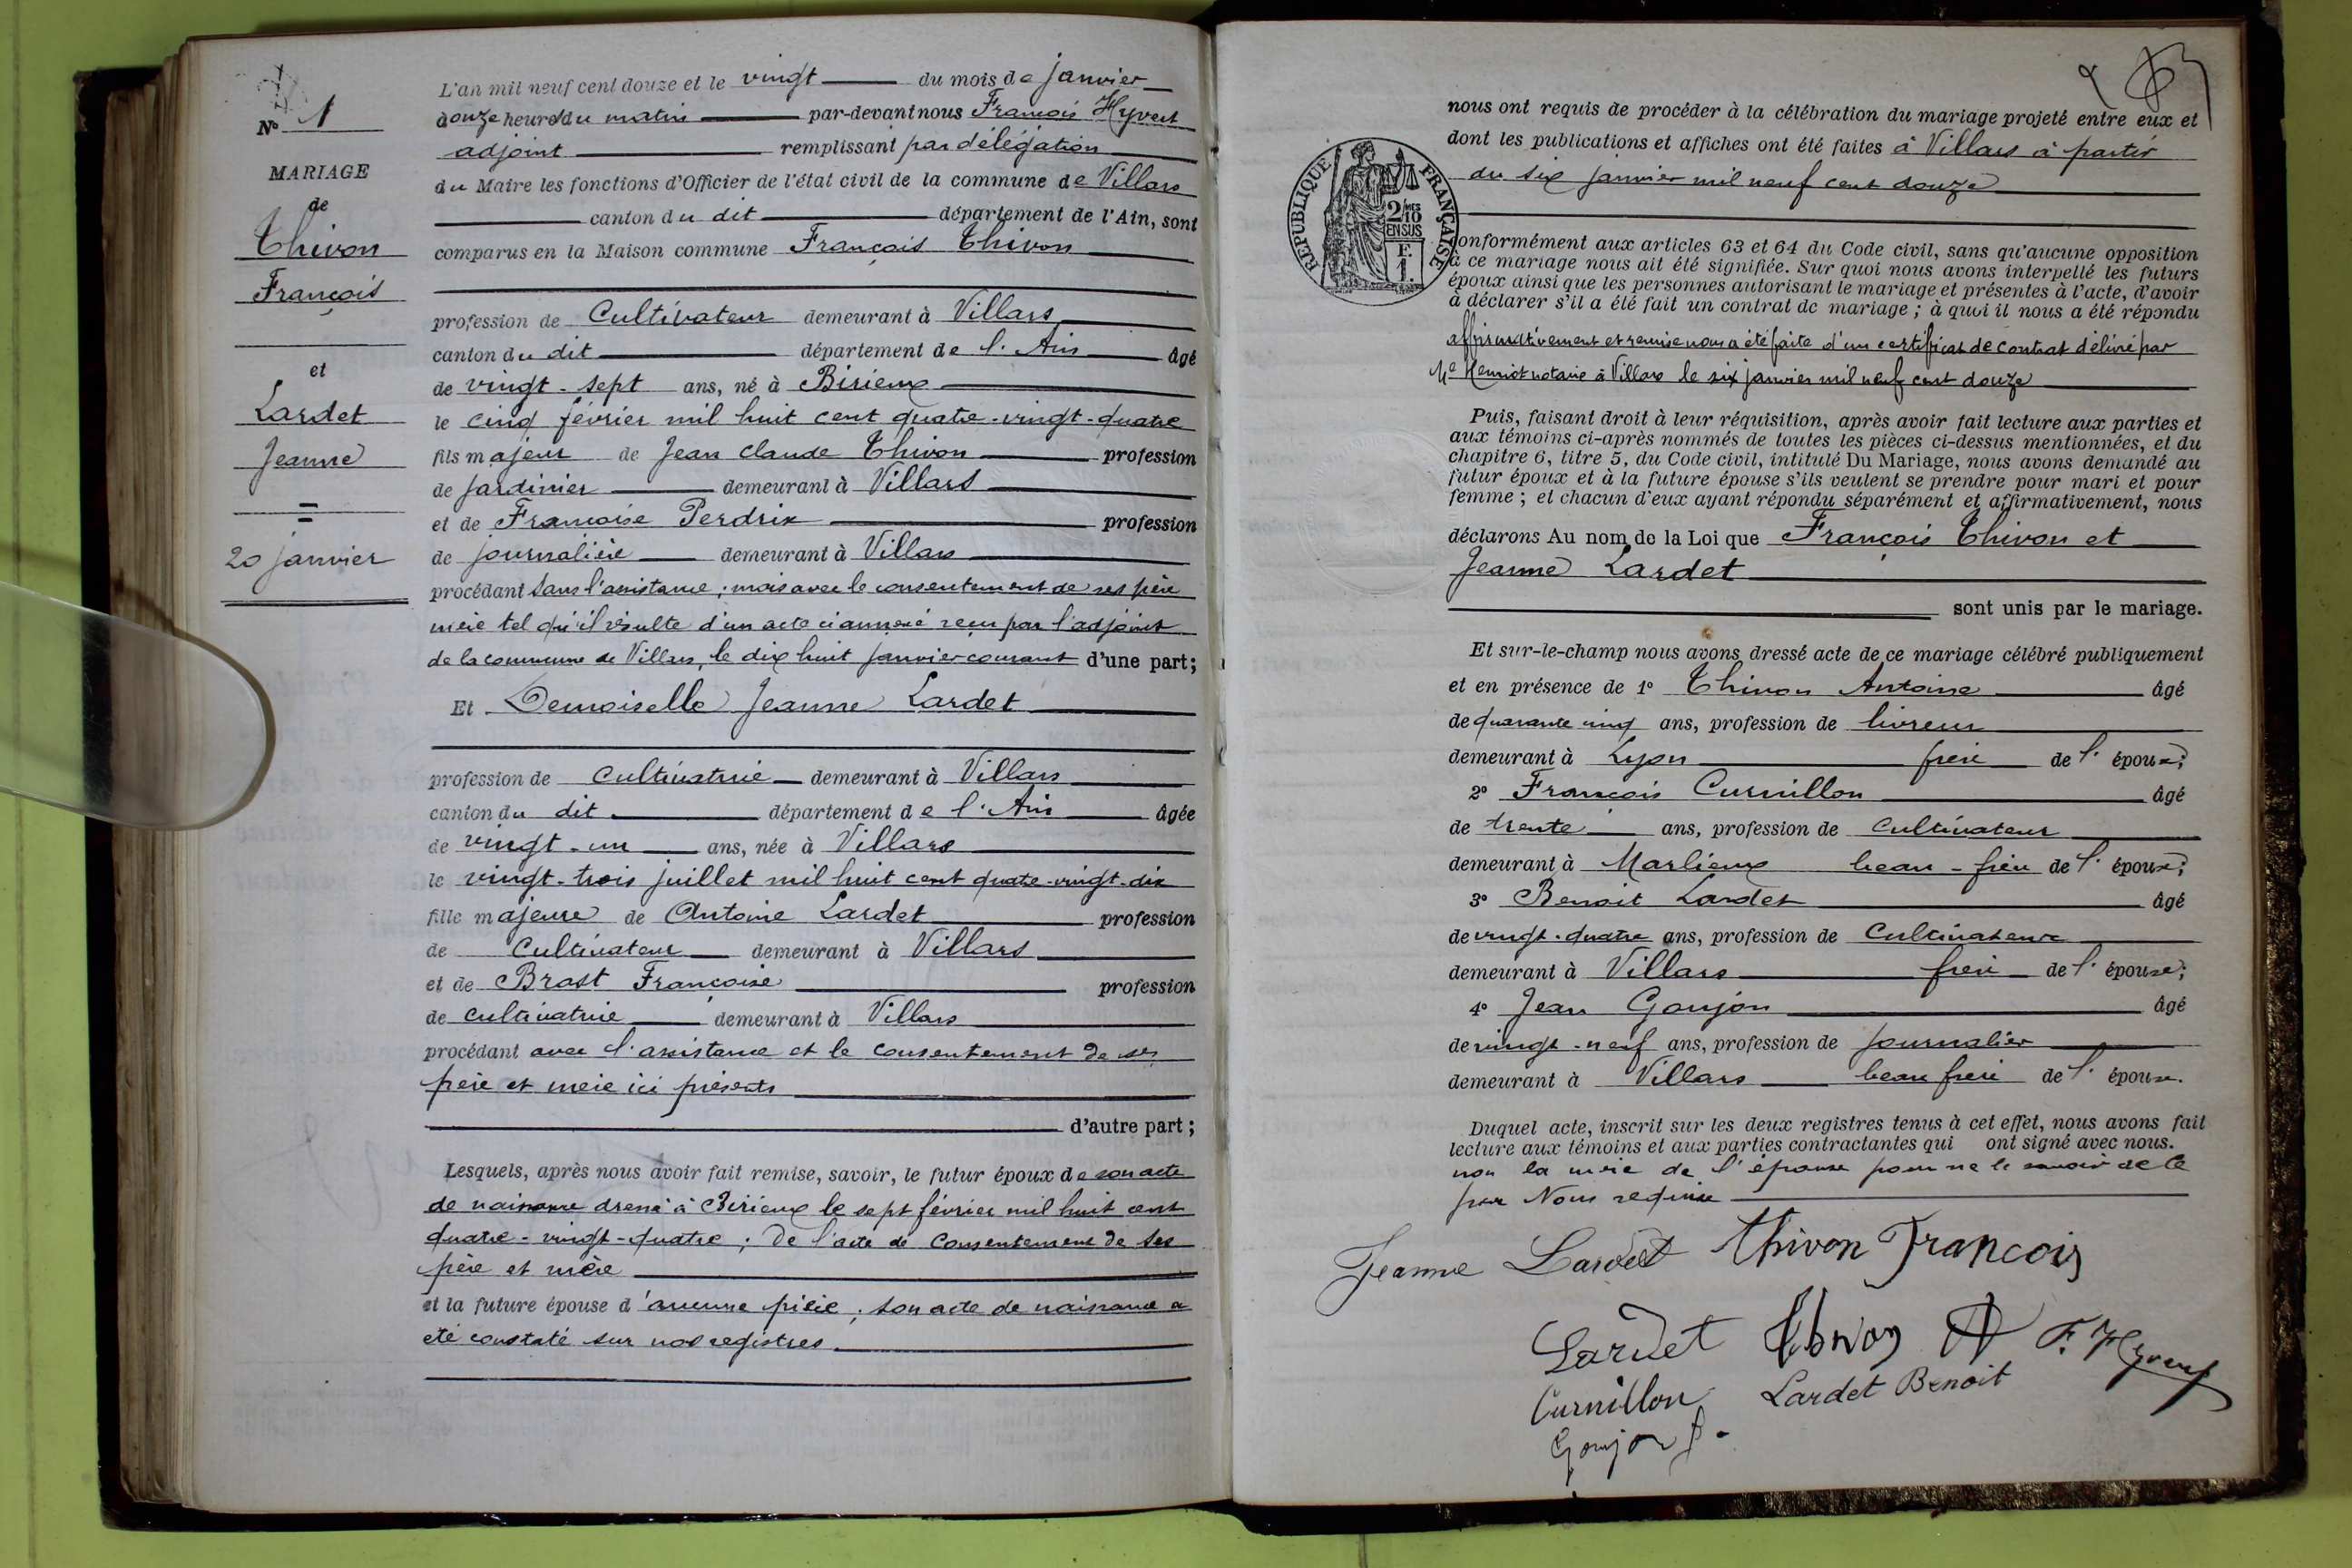 N° 1
MARIAGE
de
Thivon
François
et
Lardet
Jeanne
20 janvier
L'an mil neuf cent douze et le vingt du mois de janvier
à onze heures du matin par-devant nous François Hyvert
adjoint remplissant par délégation
du Maire les fonctions d'Officier de l'état civil de la commune de Villars
canton du dit département de l'Ain, sont
comparus en la Maison commune François Thivon
profession de Cultivateur demeurant à Villars
canton du dit département de l'Ain âgé
de vingt-sept ans, né à Birieux
le cinq février mil huit cent quatre-vingt-quatre
fils majeur de Jean Claude Thivon profession
de jardinier demeurant à Villars
et de Françoise Perdrix profession
de journalière demeurant à Villars
procédant sans l'assistance ; mais avec le consentement de ses père
mère tel qu'il résulte d'un acte ci annexé reçu par l'adjoint
de la commune de Villars, le dix huit janvier courant d'une part ;
Et Demoiselle Jeanne Lardet
profession de cultivatrice demeurant à Villars
canton du dit département de l'Ain âgée
de vingt-un ans, née à Villars
le vingt-trois juillet mil huit cent quatre-vingt-dix
fille majeure de Antoine Lardet profession
de cultivateur demeurant à Villars
et de Brast Françoise profession
de cultivatrice demeurant à Villars
procédant avec l'assistance et le consentement de ses
père et mère ici présents
d'autre part ;
Lesquels, après nous avoir fait remise, savoir, le futur époux de son acte
de naissance dressé à Birieux le sept février mil huit cent
quatre-vingt-quatre ; De l'acte de consentement de ses
père et mère
et la future épouse d'aucune pièce ; son acte de naissance a
été constaté sur nos registres.
nous ont requis de procéder à la célébration du mariage projeté entre eux et
dont les publications et affiches ont été faites à Villars à partir
du six janvier mil neuf cent douze
RÉPUBLIQUE FRANÇAISE
2/10 MES
EN SUS
F.
1.
conformément aux articles 63 et 64 du Code civil, sans qu'aucune opposition
à ce mariage nous ait été signifiée. Sur quoi nous avons interpellé les futurs
époux ainsi que les personnes autorisant le mariage et présentes à l'acte, d'avoir
à déclarer s'il a été fait un contrat de mariage ; à quoi il nous a été répondu
affirmativement et remise nous a été faite d'un certificat de contrat délivré par
Me Henriot notaire à Villars le six janvier mil neuf cent douze
Puis, faisant droit à leur réquisition, après avoir fait lecture aux parties et
aux témoins ci-après nommés de toutes les pièces ci-dessus mentionnées, et du
chapitre 6, titre 5, du Code civil, intitulé Du Mariage, nous avons demandé au
futur époux et à la future épouse s'ils veulent se prendre pour mari et pour
femme ; et chacun d'eux ayant répondu séparément et affirmativement, nous
déclarons Au nom de la Loi que François Thivon et
Jeanne Lardet
sont unis par le mariage.
Et sur-le-champ nous avons dressé acte de ce mariage célébré publiquement
et en présence de 1° Thivon Antoine âgé
de quarante cinq ans, profession de livreur
demeurant à Lyon frère de l'époux ;
2° François Curnillon âgé
de trente ans, profession de cultivateur
demeurant à Marlieux beau-frère de l'époux ;
3° Benoit Lardet âgé
de vingt-quatre ans, profession de Cultivateur
demeurant à Villars frère de l'épouse ;
4° Jean Goujon âgé
de vingt-neuf ans, profession de journalier
demeurant à Villars beau frère de l'épouse.
Duquel acte, inscrit sur les deux registres tenus à cet effet, nous avons fait
lecture aux témoins et aux parties contractantes qui ont signé avec nous.
non la mère de l'épouse pour ne le savoir de ce
par Nous requise
Jeanne Lardet Thivon François
Lardet Thivon A F. Hyvert
Curnillon Lardet Benoit
Goujon J.